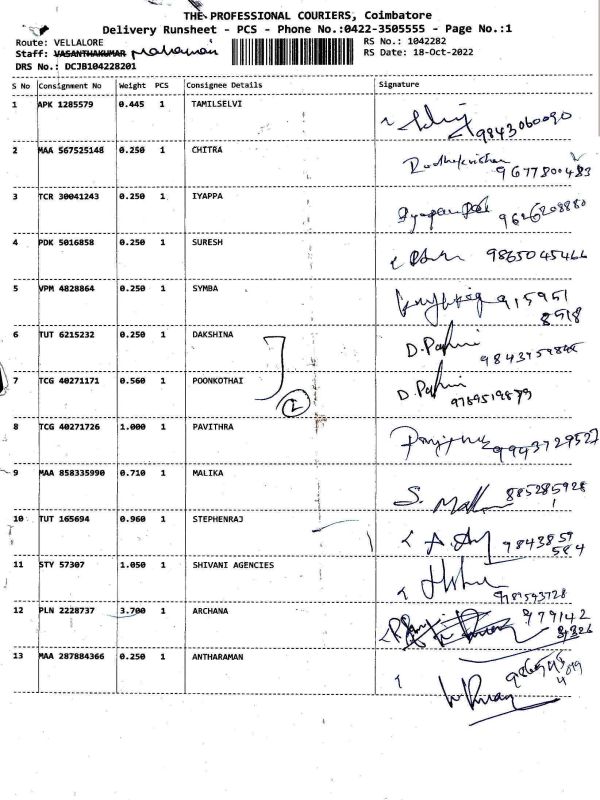 THE PROFESSIONAL COURIERS, Coimbatore
Delivery Runsheet - PCS - Phone No.:0422-3505555 - Page No.:1
Route: VELLALORE RS No.: 1042282
Staff: VASANTHAKUMAR RS Date: 18-Oct-2022
DRS No.: DCJB104228201
S No Consignment No Weight PCS Consignee Details Signature
1 APK 1285579 0.445 1 TAMILSELVI
9843060090
2 MAA 567525148 0.250 1 CHITRA
Radhakrishnan
9677800483
3 TCR 30041243 0.250 1 IYAPPA
4 PDK 5016858 0.250 1 SURESH 9865045466
5 VPM 4828864 0.250 1 SYMBA 915951
8518
6 TUT 6215232 0.250 1 DAKSHINA D. Padmi
7 TCG 40271171 0.560 1 POONKOTHAI D. Padmi
2 9789519879
8 TCG 40271726 1.000 1 PAVITHRA
9943729527
9 MAA 858335990 0.710 1 MALIKA
S. 885285928
1
10 TUT 165694 0.960 1 STEPHENRAJ
9843859
584
11 STY 57307 1.050 1 SHIVANI AGENCIES
12 PLN 2228737 3.700 1 ARCHANA 979142
13 MAA 287884366 0.250 1 ANTHARAMAN